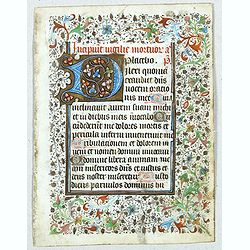 Incipiut vigilie mortuor a
Placebo. P
Dilexi quonia
exaudiet dns
vocem oratio
nis mee
inclinavit aurem suam michi
et in diebus meis invocabo
Circudederut me dolores mortis et
pericula inferni invenerunt me
tribulationem et dolorem in
veni et nomen domini invocavi
O domine libera animam mea
misericors dns et iustus et
deus noster miseretur
diens parvulos dominus hu